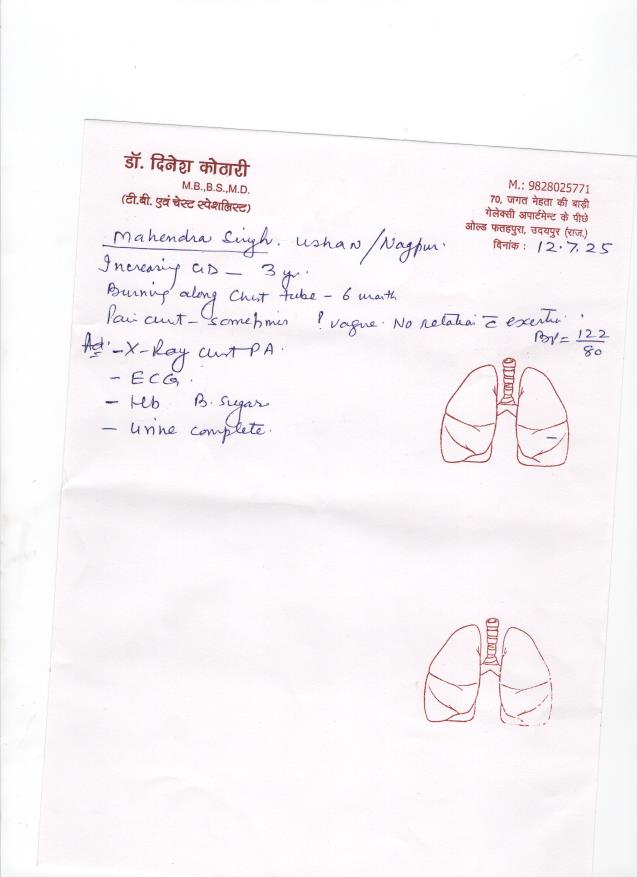 डॉ. दिनेश कोठारी
M.B.,B.S.,M.D.
(टी.बी. एवं चेस्ट स्पेशलिस्ट)
M.: 9828025771
70, जगत मेहता की बाड़ी
गेलेक्सी अपार्टमेन्ट के पीछे
ओल्ड फतहपुरा, उदयपुर (राज.)
दिनांक : 12.7.25
Mahendra Singh. /Nagpur.
Increasing - 3 yr.
Burning along Chest tube - 6 month
Pain chest - sometimes ? vague. No relation c̄ exertion.
BP = 122/80
Ad: - X-Ray chest PA.
- ECG.
- Hb B. Sugar
- Urine complete.